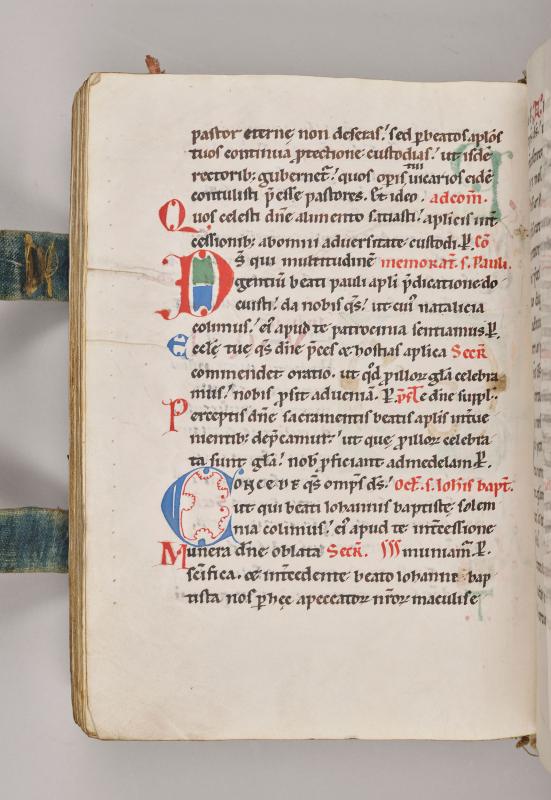 pastor eternę non deseras.' sed ꝑ beatos aplōs
tuos continua ꝓtectione custodias.' ut isdē
rectorib; gubernet̄.' quos oꝑis uicarios eidē
contulisti p̄esse pastores. Et ideo. ad com̄.
Quos celesti dn̄e alimento satiasti.' aplicis int̄
cessionib; ab omni aduersitate custodi. ꝑ. Cō
Ds̄ qui multitudinē memorat̄. s. Pauli.
gentiū beati pauli apli p̄dicatione do
cuisti.' da nobis qs̄.' ut cui᾽ natalicia
colimus.' ei᾽ apud te patrocinia sentiamus. ꝑ.
Eccłę tuę qs̄ dn̄e p̄ces ⁊ hostias aplica Secr̄
commendet oratio. ut qd̄ ꝓ illoꝝ gła celebra
mus.' nobis ꝓsit ad ueniā. ꝑ. p̄fł e dn̄e suppl.
Perceptis dn̄e sacramentis beatis aplis int̄ue
nientib; dep̄camur.' ut quę ꝓ illoꝝ celebra
ta sunt gła.' nob̄ ꝓficiant ad medelam. ꝑ.
Concede qs̄ omps̄ ds̄.' Oct̄. s. Ioh̄is bapt̄.
ut e qui beati Iohannis baptistę solem
nia colimus.' ei᾽ apud te int̄cessione
Munera dn̄e oblata Secr̄. muniam̄. ꝑ.
sc̄ifica. ⁊ int̄cedente beato Iohanne bap
tista nos ꝑ hęc a peccatoꝝ nr̄oꝝ maculis e